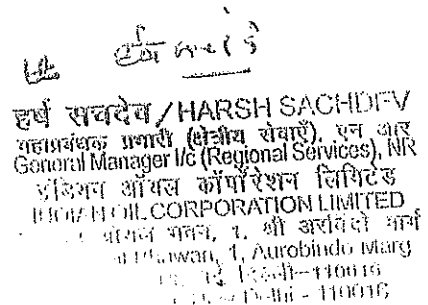 हर्ष सचदेव/HARSH SACHDEV
महाप्रबंधक प्रभारी (क्षेत्रीय सेवाएँ), एन आर
General Manager I/c (Regional Services), NR
इंडियन ऑयल कॉर्पोरेशन लिमिटेड
INDIAN OIL CORPORATION LIMITED
भवन, 1, श्री अरविंदो मार्ग
1, Aurobindo Marg
दिल्ली-110016
Delhi - 110016